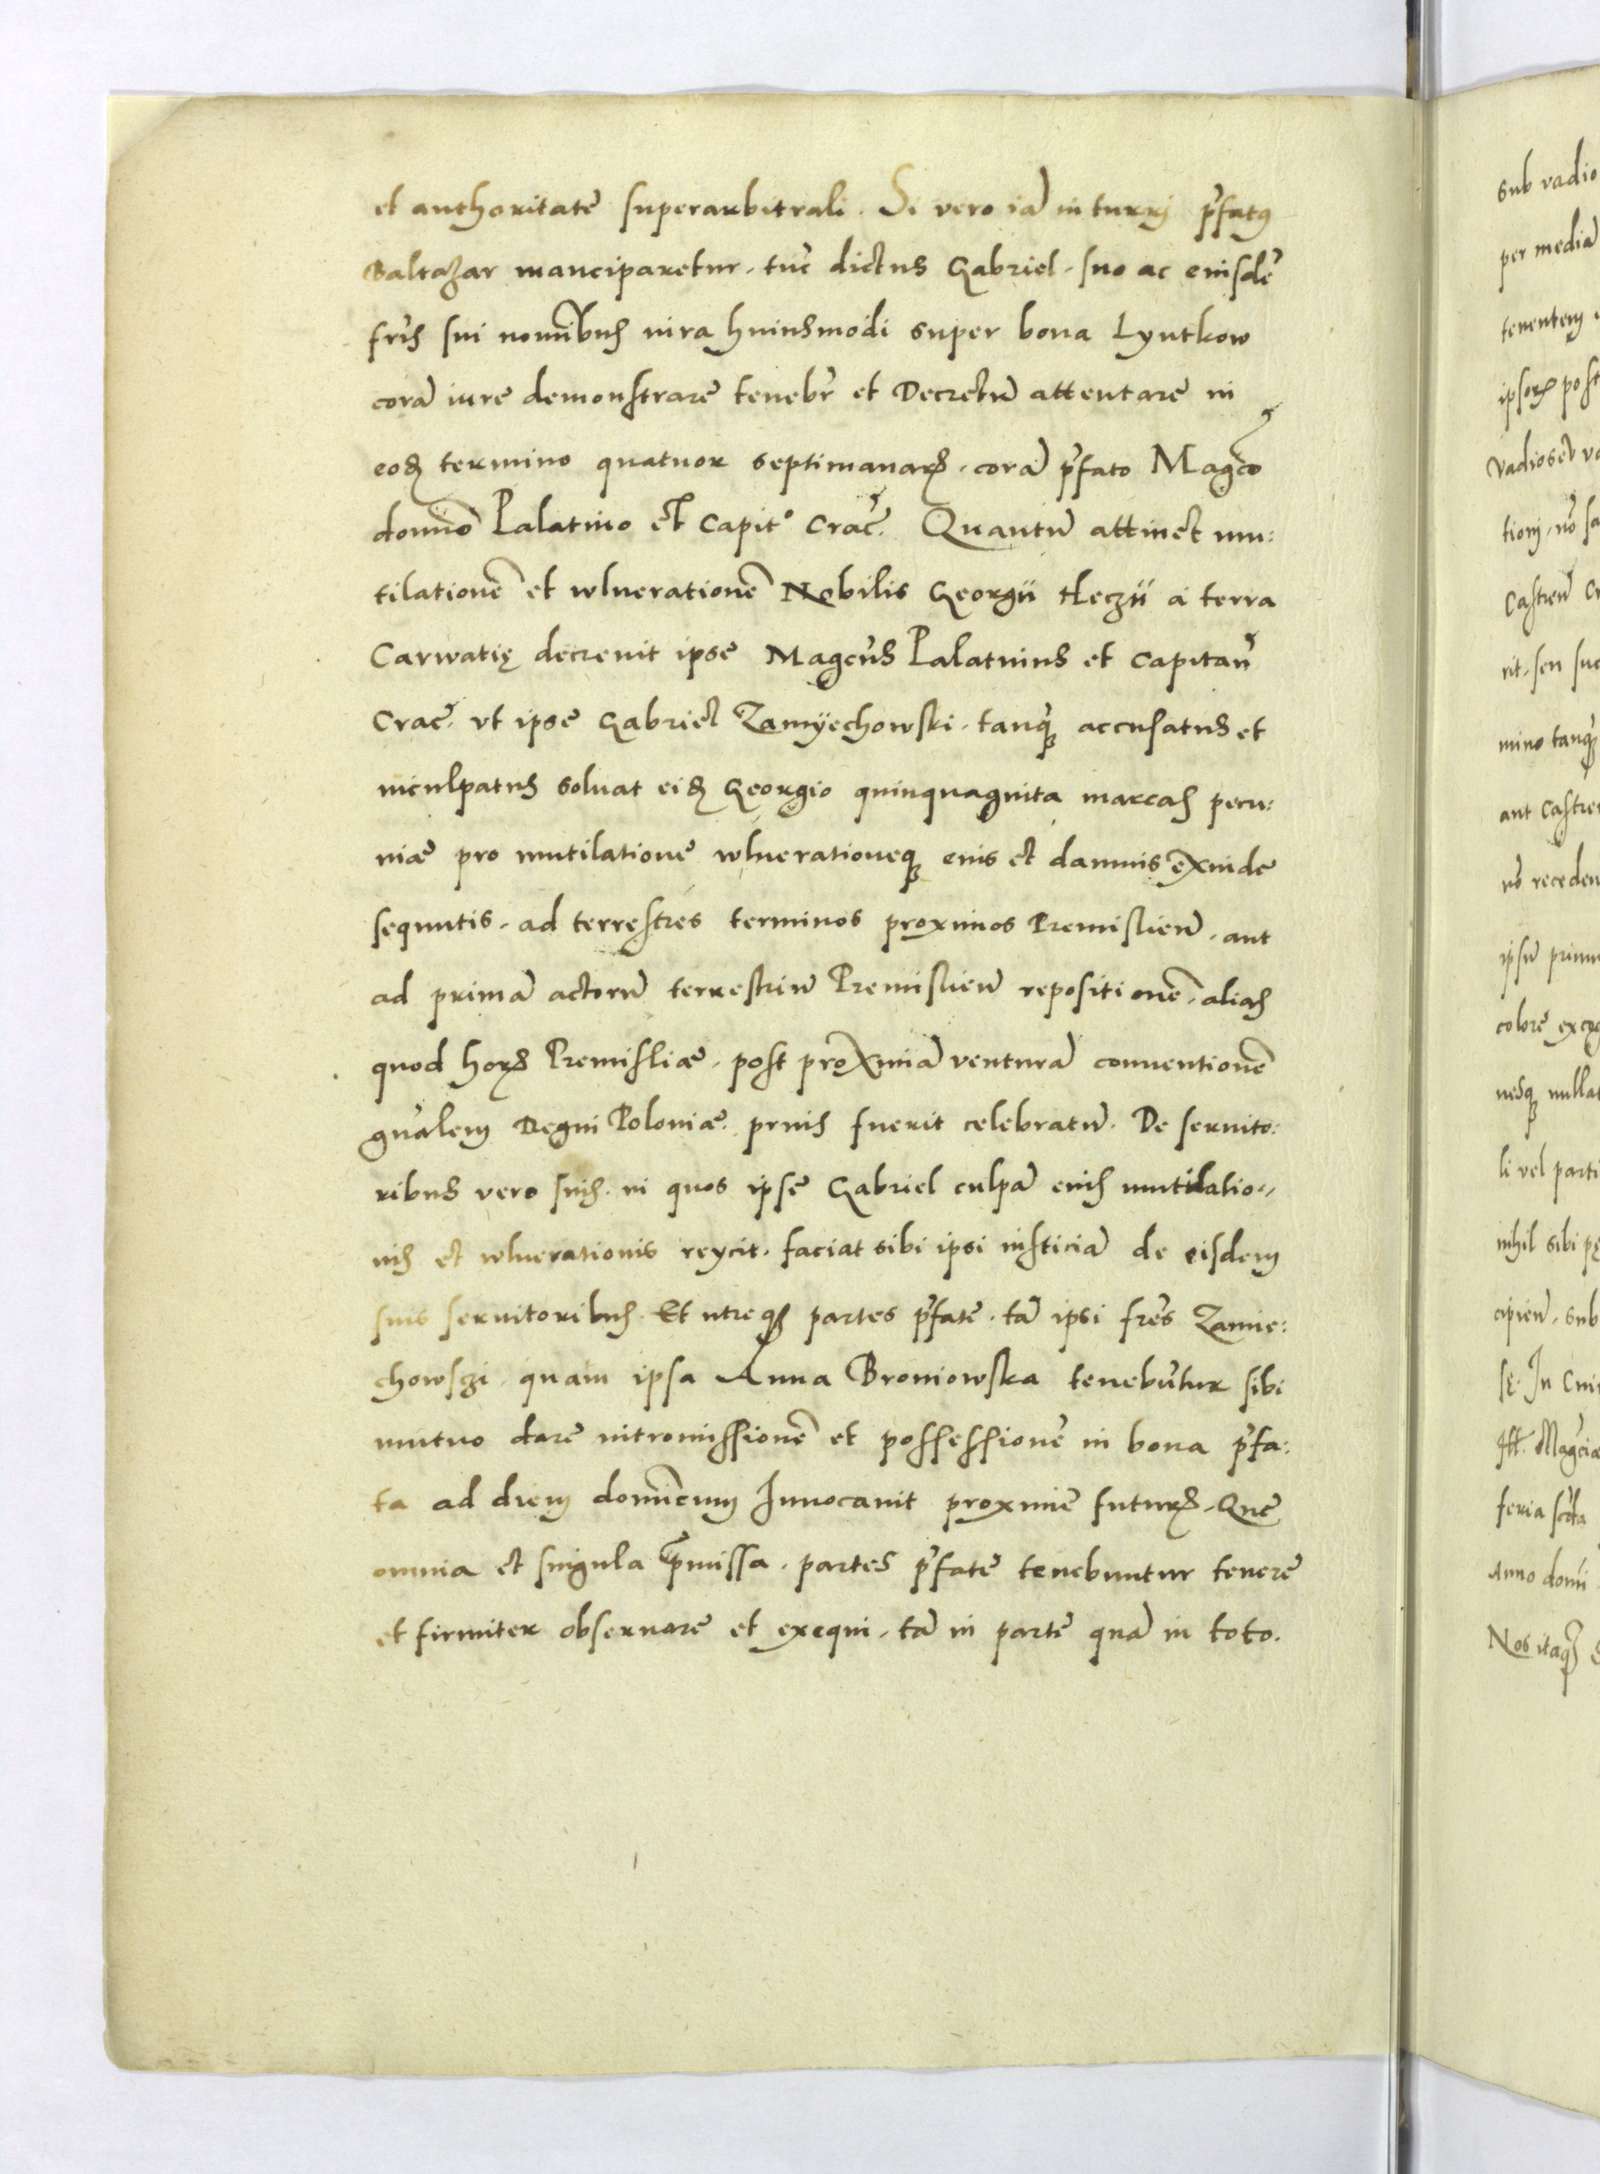 et authoritate superarbitrali. Si vero iā in turrj p̄fatꝯ
Baltazar manciparetur, tūc dictus Gabriel, suo ac eiusdē
fr̄is sui nomībus iura huiusmodi super bona Lyutkow
corā iure demonstrare tenebr̄ et Decretū attentare in
eoꝺ termino quatuor septimanaꝝ, corā p̄fato Magc̄o
domīo Palatino et Capit° Crac̄. Quantū attinet mu:
tilationē et wlnerationē Nobilis Georgii Heczii a terra
Carwatię decreuit ipse Magcūs Palatinus et Capitan̄
Crac̄. vt ipse Gabriel Zamÿechowski, tanqꝫ accusatus et
inculpatus soluat eiꝺ Georgio quinquaginta marcas pecu:
niæ pro mutilatione wlnerationeqꝫ eius et damnis exinde
sequutis, ad terrestres terminos proximos Premislien̄, aut
ad primā actorū terrestriū Premislien̄ repositionē, alias
quod hoꝝ Premisliæ, post proximā venturā conuentionē
gn̄alem Regni Poloniæ. prius fuerit celebratū. De seruito:
ribus vero suis, in quos ipse Gabriel culpā eius mutilatio:
nis et wlnerationis reycit, faciat sibi ipsi iusticiā de eisdem
suis seruitoribus. Et utreqꝫ partes p̄fate, tā ipsi fr̄es Zamie:
chowszi, quam ipsa Anna Broniowska tenebūtur sibi
mutuo dare intromissionē et possessionē in bona p̄fa:
ta ad diem domīcum Inuocauit proxime futuꝝ. Que
omnia et singula p̄missa, partes p̄fate tenebuntur tenere
et firmiter obseruare et exequi, tā in parte quā in toto.
sub vadio
per mediā
tenentem
ipsoꝝ post
Castren̄
rit, seu
mino tanqꝫ
aut Castre
nō receden
ipsū primu
colore
nesqꝫ nulla
li vel parti
nihil sibi
cipien̄, sub
sę. In Cui
feria
Anno domī
Nos itaqꝫ